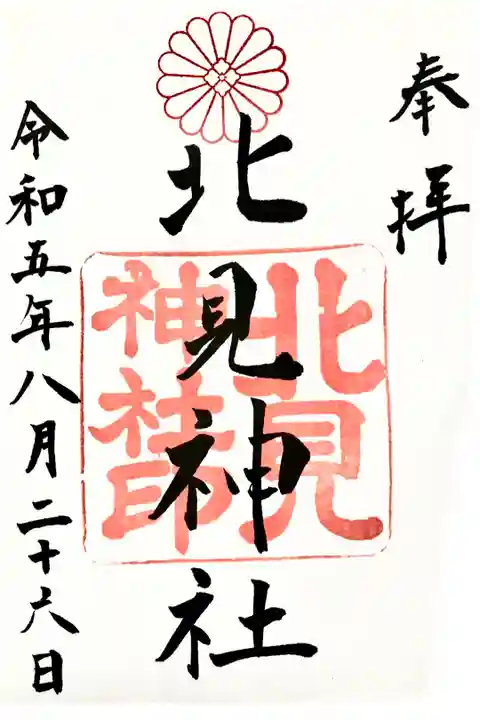 奉拝
北見神社
北見
神社印
令和五年八月二十六日